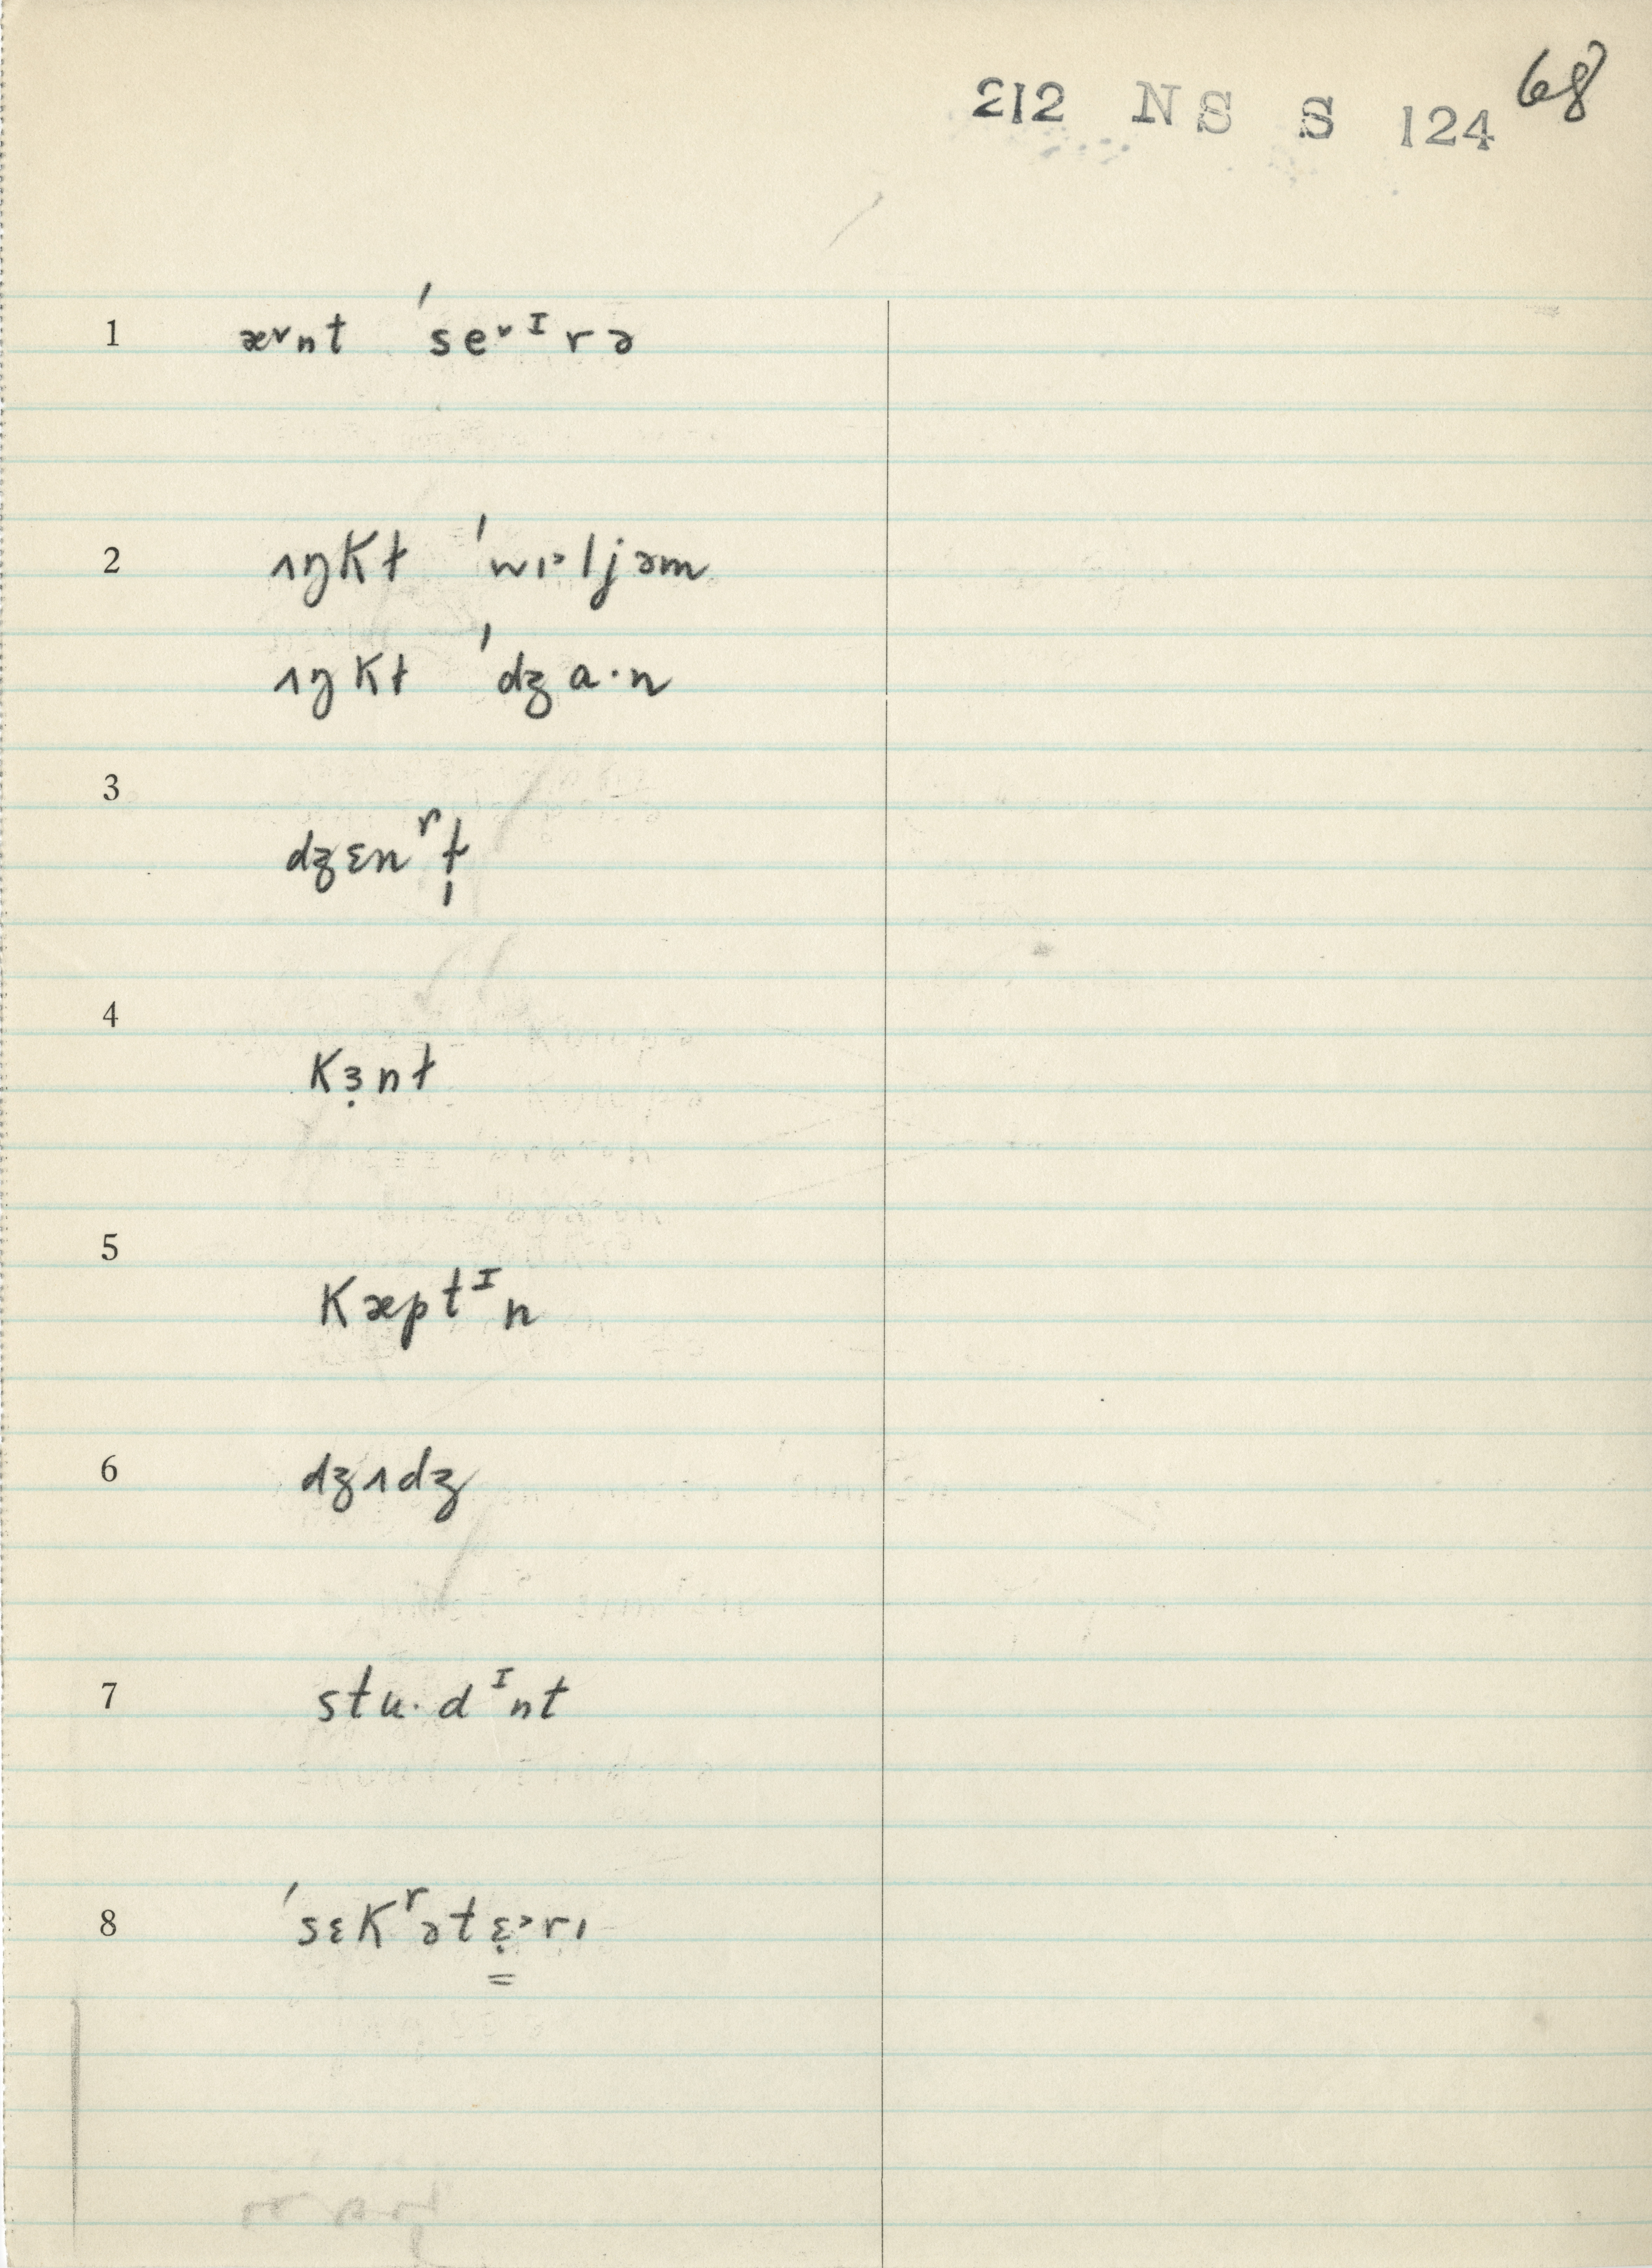 212 NS S 124 68
1 æ˅nt ˈse˅ᴵrə
2 ʌŋkɫ ˈwɪ˃ljəm
ʌŋkɫ ˈdʒɑ·n
3
dʒɛnʳɫ̩
4
kɜ̣nɫ
5
kæptᴵn
6 dʒʌdʒ
7 stu·dᴵnt
8 ˈsɛkʳətɛ̣˃rɪ